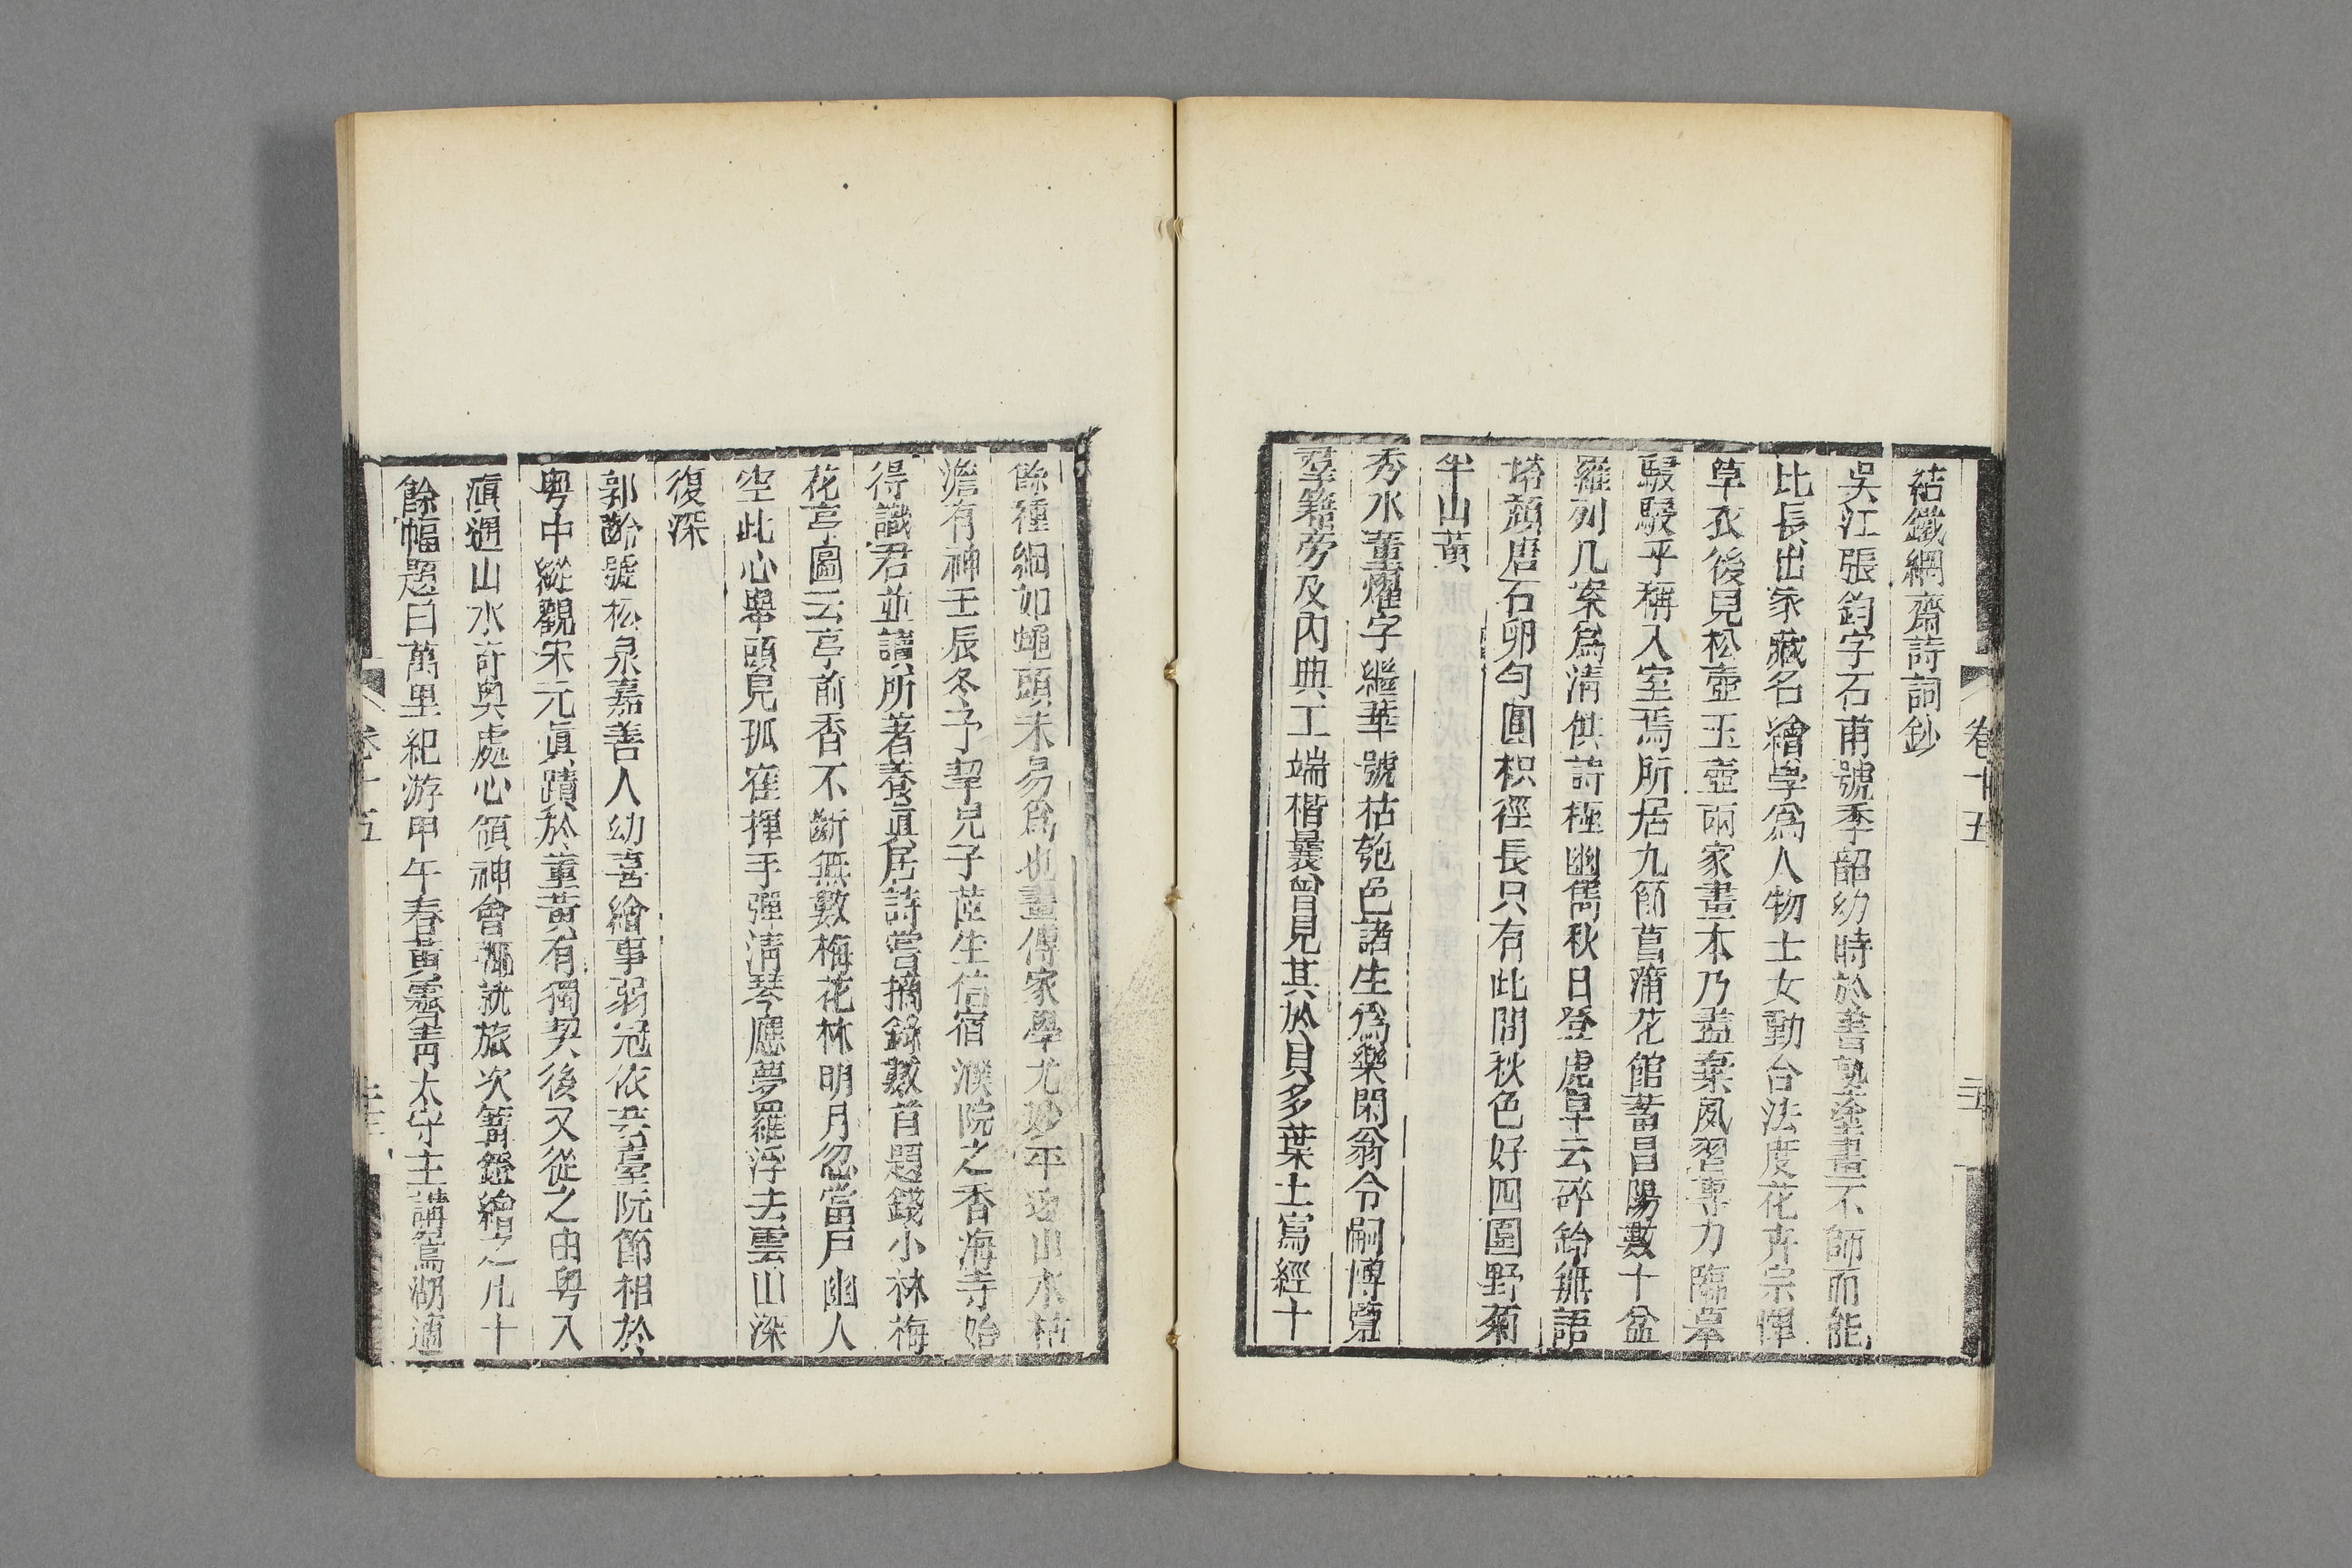 結鐵網齋詩詞鈔
吳江張鈞字石甫號季韶幼時於書塾塗畫不師而能
比長出家藏名繪學爲人物士女動合法度花卉宗惲
草衣後見松壺玉壺兩家畫本乃盡棄夙習專力臨摹
駸駸乎稱入室焉所居九節菖蒲花館蓄昌陽數十盆
羅列几案爲清供詩極幽雋秋日登虎阜云碎鈴無語
塔顏唐石卵勻圓枳徑長只有此間秋色好四圍野菊
半山黃
秀水董燿字繼華號枯匏邑諸生爲樂閑翁令嗣博覽
羣籍旁及內典工端楷曩曾見其於貝多葉上寫經十
卷十五
餘種細如蠅頭未易爲也畫傳家學尤妙平遠山水枯
澹有神壬辰冬予挈兒子蔭生信宿濮院之香海寺始
得識君並讀所著養眞居詩嘗摘錄數首題錢小林梅
花亭圖云亭前香不斷無數梅花林明月忽當戶幽人
空此心舉頭見孤隺揮手彈清琴應夢羅浮去雲山深
復深
郭齡號松泉嘉善人幼喜繪事弱冠依芸臺阮節相於
粤中縱觀宋元眞蹟於董黃有獨契後又從之由粤入
滇遇山水奇奥處心領神會輒就旅次篝鐙繪之凡十
餘幅題曰萬里紀游甲午春黃霽青太守主講鴛湖適
卷十五